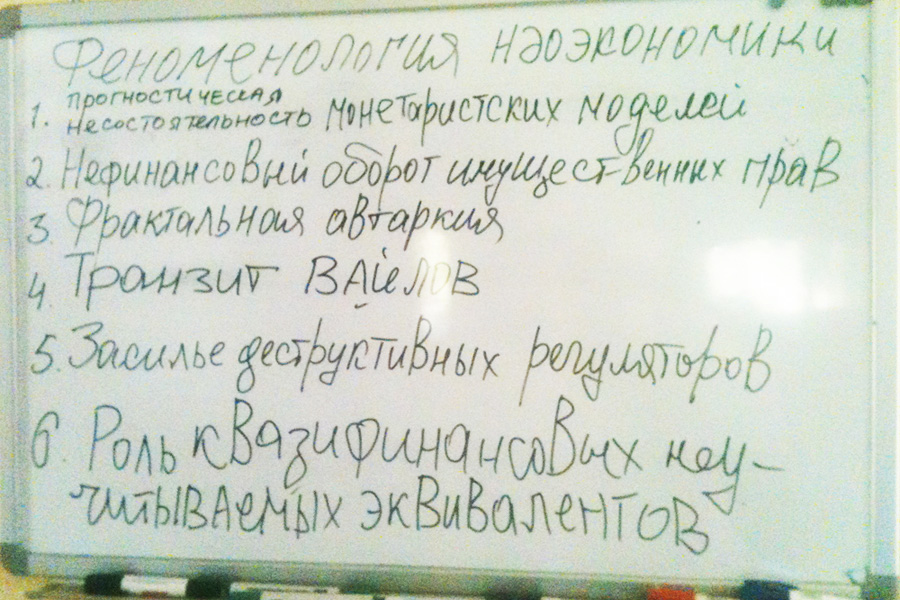 Феноменология нэоэкономики
1. прогностическая несостоятельность монетаристских моделей
2. Нефинансовый оборот имущественных прав
3. Фрактальная автаркия
4. Транзит
5. Засилье деструктивных регуляторов
6. Роль квазифинансовых неу-
читываемых эквивалентов